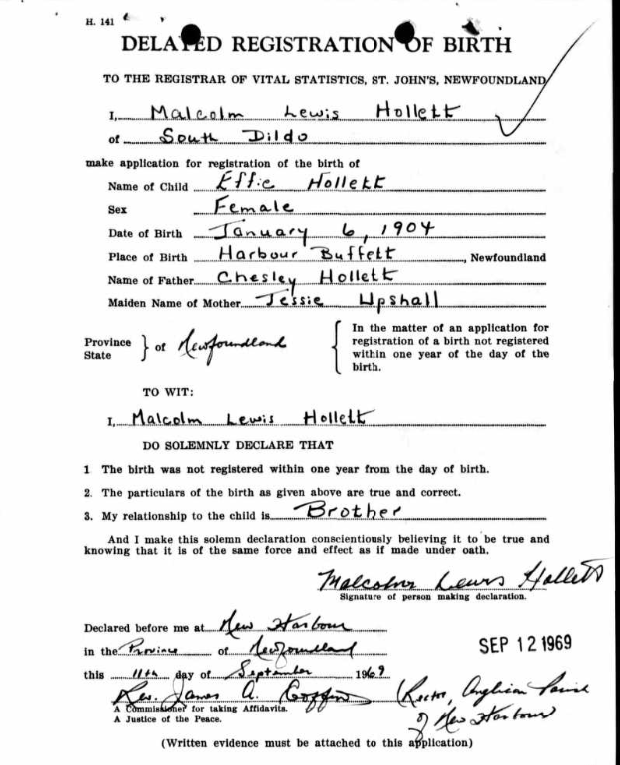 H. 141
DELAYED REGISTRATION OF BIRTH
TO THE REGISTRAR OF VITAL STATISTICS, ST. JOHN'S, NEWFOUNDLAND
I, Malcolm Lewis Hollett
of South Dildo
make application for registration of the birth of
Name of Child Effie Hollett
Sex Female
Date of Birth January 6, 1904
Place of Birth Harbour Buffett, Newfoundland
Name of Father Chesley Hollett
Maiden Name of Mother Jessie Upshall
Province
State } of Newfoundland
{ In the matter of an application for
registration of a birth not registered
within one year of the day of the
birth.
TO WIT:
I, Malcolm Lewis Hollett
DO SOLEMNLY DECLARE THAT
1 The birth was not registered within one year from the day of birth.
2. The particulars of the birth as given above are true and correct.
3. My relationship to the child is Brother
And I make this solemn declaration conscientiously believing it to be true and
knowing that it is of the same force and effect as if made under oath.
Malcolm Lewis Hollett
Signature of person making declaration.
Declared before me at New Harbour
in the Province of Newfoundland
this 11th day of September 1969
SEP 12 1969
Rev. James A. Coffin (Rector, Anglican Parish
of New Harbour)
A Commissioner for taking Affidavits.
A Justice of the Peace.
(Written evidence must be attached to this application)